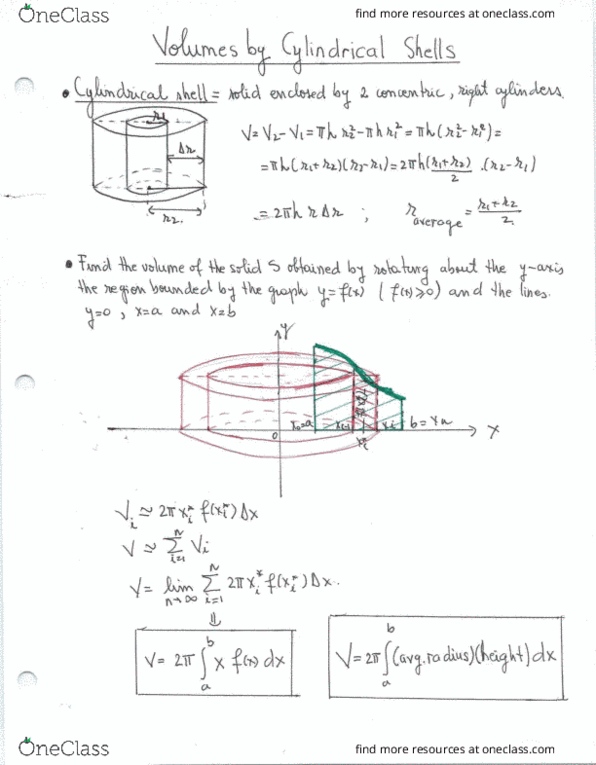 OneClass
find more resources at oneclass.com
Volumes by Cylindrical Shells
• Cylindrical shell = solid enclosed by 2 concentric, right cylinders.
r₁
Δr
r₂
V = V₂ - V₁ = πh r₂² - πh r₁² = πh (r₂² - r₁²) =
= πh (r₁ + r₂)(r₂ - r₁) = 2πh (r₁ + r₂)/2 · (r₂ - r₁)
= 2πh r Δr ; r average = (r₁ + r₂)/2
• Find the volume of the solid S obtained by rotating about the y-axis
the region bounded by the graph y = f(x) ( f(x) ≥ 0 ) and the lines.
y=0 , x=a and x=b
y
x₀=a xᵢ₋₁ xᵢ b = xn
0 x
xᵢ*
Vᵢ ≃ 2π xᵢ* f(xᵢ*) Δx
V ≃ Σ i=1 n Vᵢ
V = lim n→∞ Σ i=1 n 2π xᵢ* f(xᵢ*) Δx.
⇓
V = 2π ∫ a b x f(x) dx
V = 2π ∫ a b (avg. radius)(height) dx
OneClass
find more resources at oneclass.com